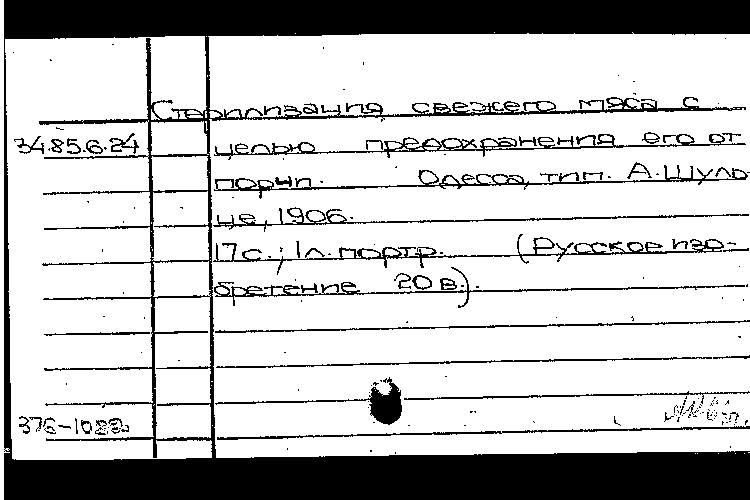 Стерилизация свежего мяса с
34.85.6.24 целью предохранения его от
порчи. Одесса, тип. А. Шуль-
це, 1906.
17 с.; 1 л. портр. (Русское изо-
бретение 20 в.).
376-1088